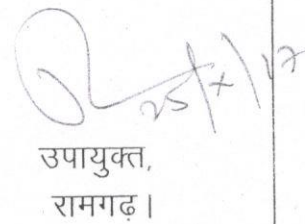 25/X/17
उपायुक्त,
रामगढ़।